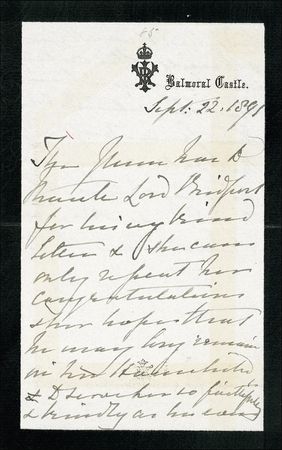 85
Balmoral Castle.
Sept: 22. 1891
The Queen has to
thank Lord Bridport
for his very kind
letter & she can
only repeat her
congratulations
& her hopes that
he may long remain
in her Household
& to serve her so faithfully
& kindly as he ever